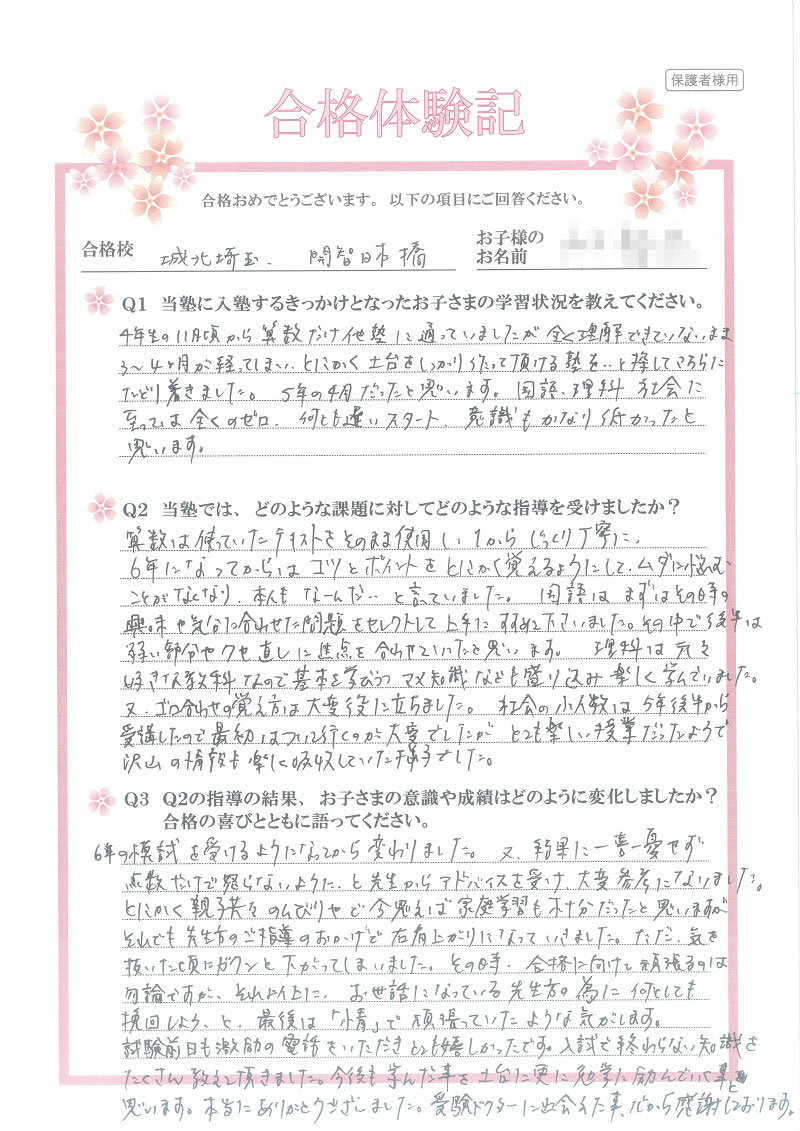 保護者様用
合格体験記
合格おめでとうございます。以下の項目にご回答ください。
合格校 城北埼玉、 開智日本橋
お子様の
お名前
Q1 当塾に入塾するきっかけとなったお子さまの学習状況を教えてください。
4年生の11月頃から算数だけ他塾に通っていましたが全く理解できていないまま
3〜4ヶ月が経ってしまい、とにかく土台をしっかり作って頂ける塾を…と探してこちらに
たどり着きました。 5年の4月だったと思います。国語、理科 社会に
至っては全くのゼロ、何とも遅いスタート、意識もかなり低かったと
思います。
Q2 当塾では、どのような課題に対してどのような指導を受けましたか？
算数は使っていたテキストをそのまま使用し 1からじっくり丁寧に、
6年になってからはコツとポイントをとにかく覚えるようにして、ムダに悩む
ことがなくなり、本人もなーんだ…と言っていました。 国語は まずはその時の
興味や気分に合わせた問題をセレクトして上手にすすめて下さいました。その中で後半は
弱い部分やクセ直しに焦点を合わせていたと思います。 理科は元々
好きな教科なので基本を学びつつマメ知識なども盛り込み楽しく学んでいました。
又、ゴロ合わせの覚え方は大変役に立ちました。 社会の小人数は5年後半から
受講したので最初はついて行くのが大変でしたが とても楽しい授業だったようで
沢山の情報も楽しく吸収していた様子でした。
Q3 Q2の指導の結果、お子さまの意識や成績はどのように変化しましたか？
合格の喜びとともに語ってください。
6年の模試を受けるようになってから変わりました。 又、結果に一喜一憂せず
点数だけで怒らないように、と先生からアドバイスを受け、大変参考になりました。
とにかく親子共々のんびりやで今思えば家庭学習も不十分だったと思いますが
それでも先生方のご指導のおかげで右肩上がりになっていきました。ただ、気を
抜いた頃にガクンと下がってしまいました。その時、合格に向けて頑張るのは
勿論ですが、それ以上に、お世話になっている先生方の為に何としても
挽回しよう、と、最後は「情」で頑張っていたような気がします。
試験前日も激励の電話をいただきとても嬉しかったです。入試で終わらない知識を
たくさん教えて頂きました。今後も学んだ事を土台に更に勉学に励んでいく事と
思います。本当にありがとうございました。受験ドクターに出会えた事、心から感謝しております。